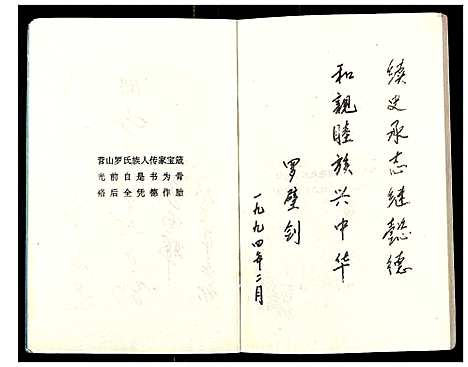 续史承志继懿德
和亲睦族兴中华
罗壁剑
一九九四年二月
营山罗氏族人传家宝箴
光前自是书为骨
裕后全凭德作胎